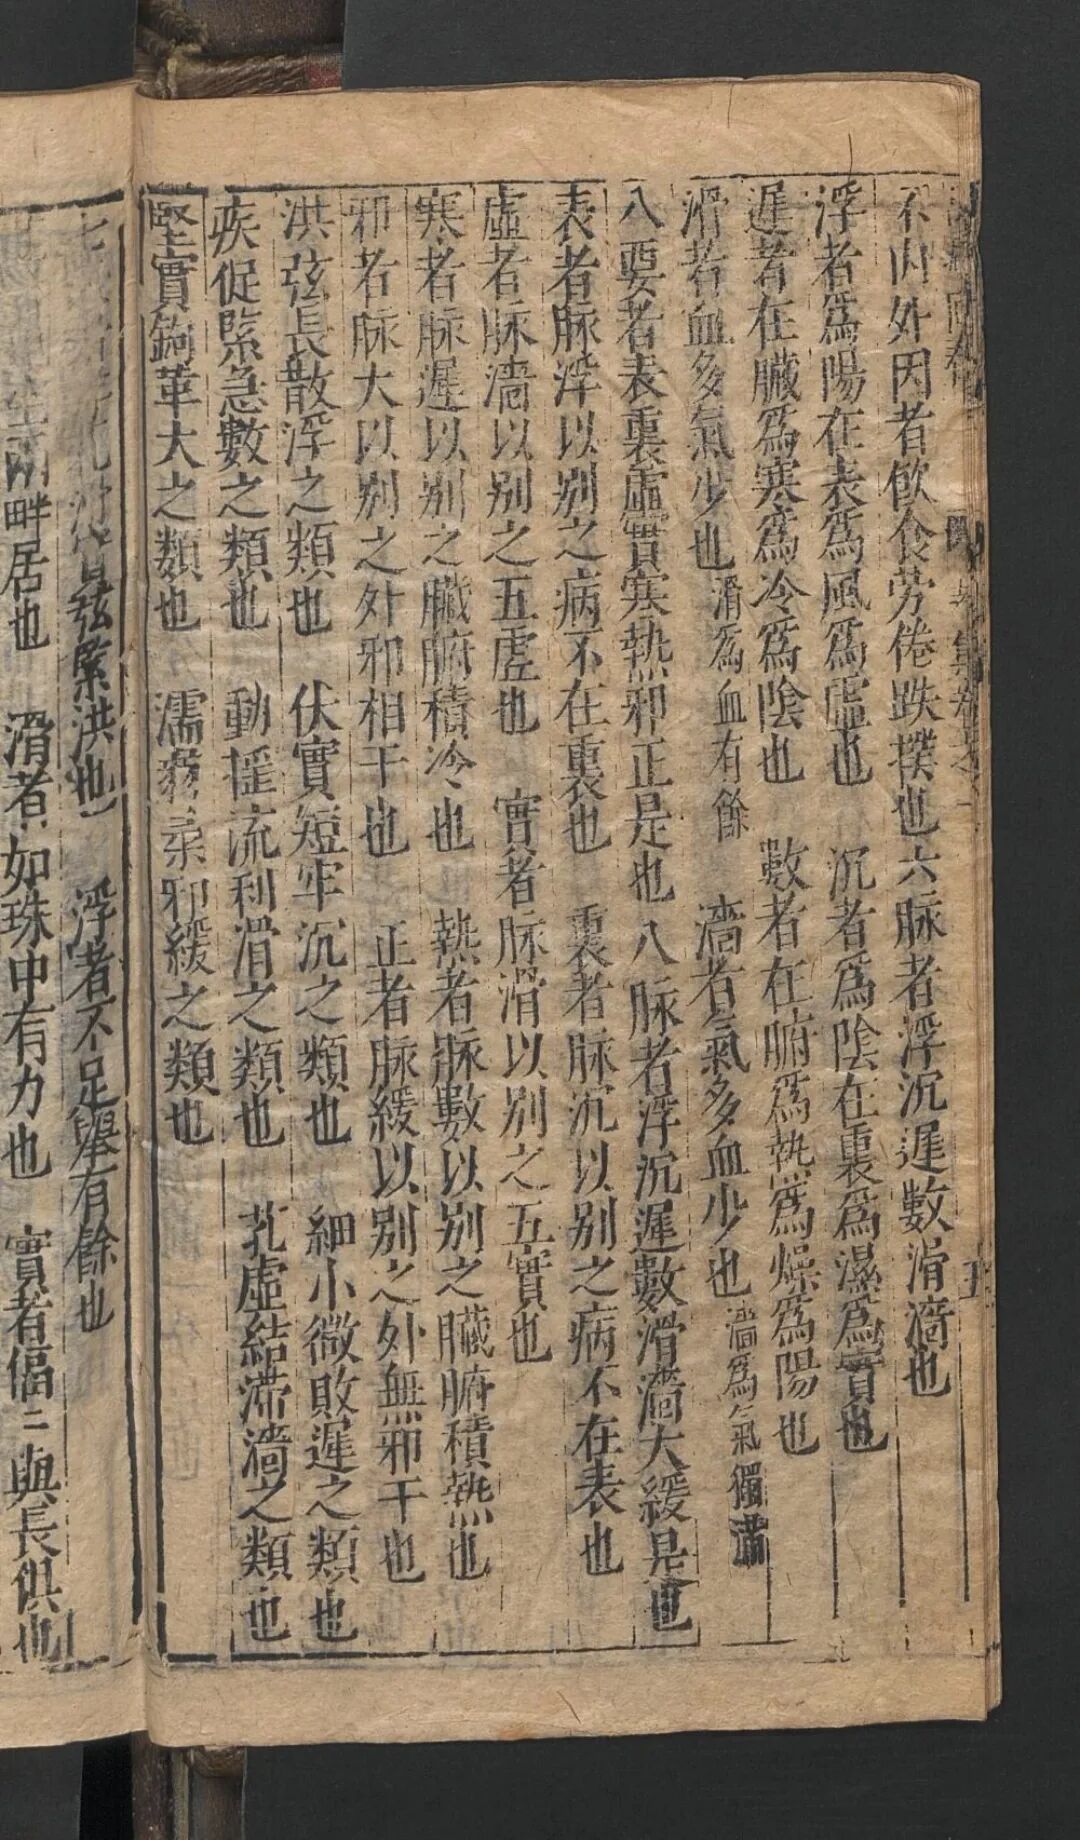 不內外因者飲食勞倦跌撲也六脉者浮沉遲數滑濇也
浮者爲陽在表爲風爲虛也 沉者爲陰在裏爲濕爲實也
遲者在臟爲寒爲冷爲陰也 數者在腑爲熱爲燥爲陽也
滑者血多氣少也滑爲血有餘 濇者氣多血少也濇爲氣獨滿
八要者表裏虛實寒熱邪正是也八脈者浮沉遲數滑濇大緩是也
表者脉浮以别之病不在裏也 裏者脉沉以别之病不在表也
虛者脉濇以别之五虛也 實者脉滑以别之五實也
寒者脉遲以别之臟腑積冷也 熱者脈數以别之臟腑積熱也
邪者脉大以别之外邪相干也 正者脉緩以别之外無邪干也
洪弦長散浮之類也 伏實短牢沉之類也 細小微敗遲之類也
疾促緊急數之類也 動摇流利滑之類也 芤虛結滯濇之類也
堅實鉤革大之類也 濡弱柔邪緩之類也
弦緊洪也 浮者不足舉有餘也
兩畔居也 滑者如珠中有力也 實者偪偪與長俱也